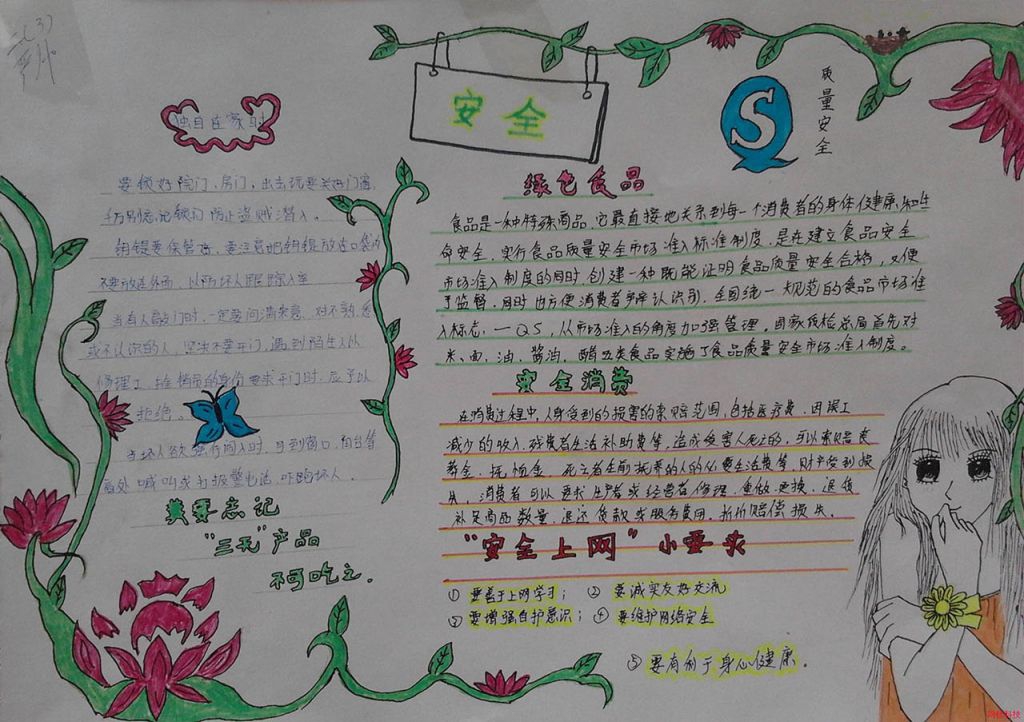 安全
质量安全
独自在家时
要锁好院门、房门,出去玩要关好门窗,
千万别忘记锁门,防止盗贼潜入。
钥匙要保管好,要注意把钥匙放在口袋内
不要放在外面,以防坏人跟踪入室
当有人敲门时,一定要问清来意,对不熟悉
或不认识的人,坚决不要开门,遇到陌生人以
修理工、推销员的身份要求开门时,应予以
拒绝。
当坏人欲强行闯入时,可到窗口、阳台等
高处喊叫或打报警电话,吓跑坏人。
莫要忘记
“三无”产品
不可吃之.
绿色食品
食品是一种特殊商品,它最直接地关系到每一个消费者的身体健康和生
命安全,实行食品质量安全市场准入标准制度,是在建立食品安全
市场准入制度的同时,创建一种既能证明食品质量安全合格,又便
于监督,同时也方便消费者辨认识别,全国统一规范的食品市场准
入标志,一QS,从市场准入的角度加强管理,国家质检总局首先对
米、面、油、酱油、醋五类食品实施了食品质量安全市场准入制度。
安全消费
在消费过程中,人身受到的损害的索赔范围,包括医疗费、因误工
减少的收入、残废者生活补助费等,造成受害人死亡的,可以索赔丧
葬金、抚恤金、死亡者生前抚养的人的必要生活费等,财产受到损
失,消费者可以要求生产者或经营者修理、重做、更换、退货
补足商品数量、退还货款或服务费用、折价赔偿损失。
“安全上网”小要求
① 要善于上网学习; ② 要诚实友好交流
③ 要增强自护意识; ④ 要维护网络安全
⑤ 要有利于身心健康.